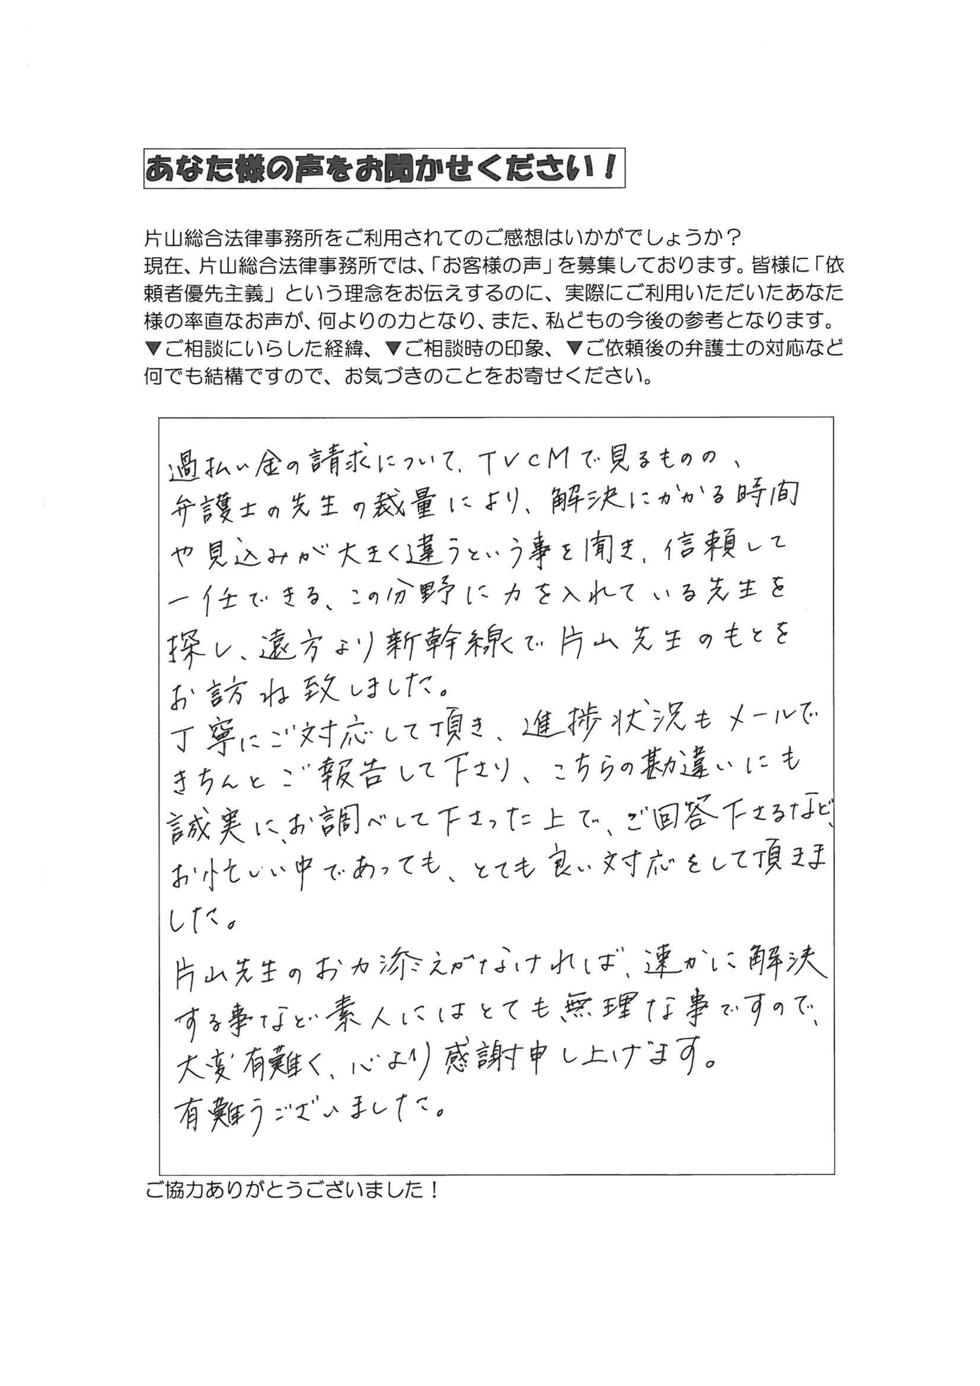 あなた様の声をお聞かせください！
片山総合法律事務所をご利用されてのご感想はいかがでしょうか？
現在、片山総合法律事務所では、「お客様の声」を募集しております。皆様に「依
頼者優先主義」という理念をお伝えするのに、実際にご利用いただいたあなた
様の率直なお声が、何よりの力となり、また、私どもの今後の参考となります。
▼ご相談にいらした経緯、▼ご相談時の印象、▼ご依頼後の弁護士の対応など
何でも結構ですので、お気づきのことをお寄せください。
過払い金の請求について、TVCMで見るものの、
弁護士の先生の裁量により、解決にかかる時間
や見込みが大きく違うという事を聞き、信頼して
一任できる、この分野に力を入れている先生を
探し、遠方より新幹線で片山先生のもとを
お訪ね致しました。
丁寧にご対応して頂き、進捗状況もメールで
きちんとご報告して下さり、こちらの勘違いにも
誠実に、お調べして下さった上で、ご回答下さるなど、
お忙しい中であっても、とても良い対応をして頂きま
した。
片山先生のお力添えがなければ、速かに解決
する事など素人にはとても無理な事ですので、
大変有難く、心より感謝申し上げます。
有難うございました。
ご協力ありがとうございました！